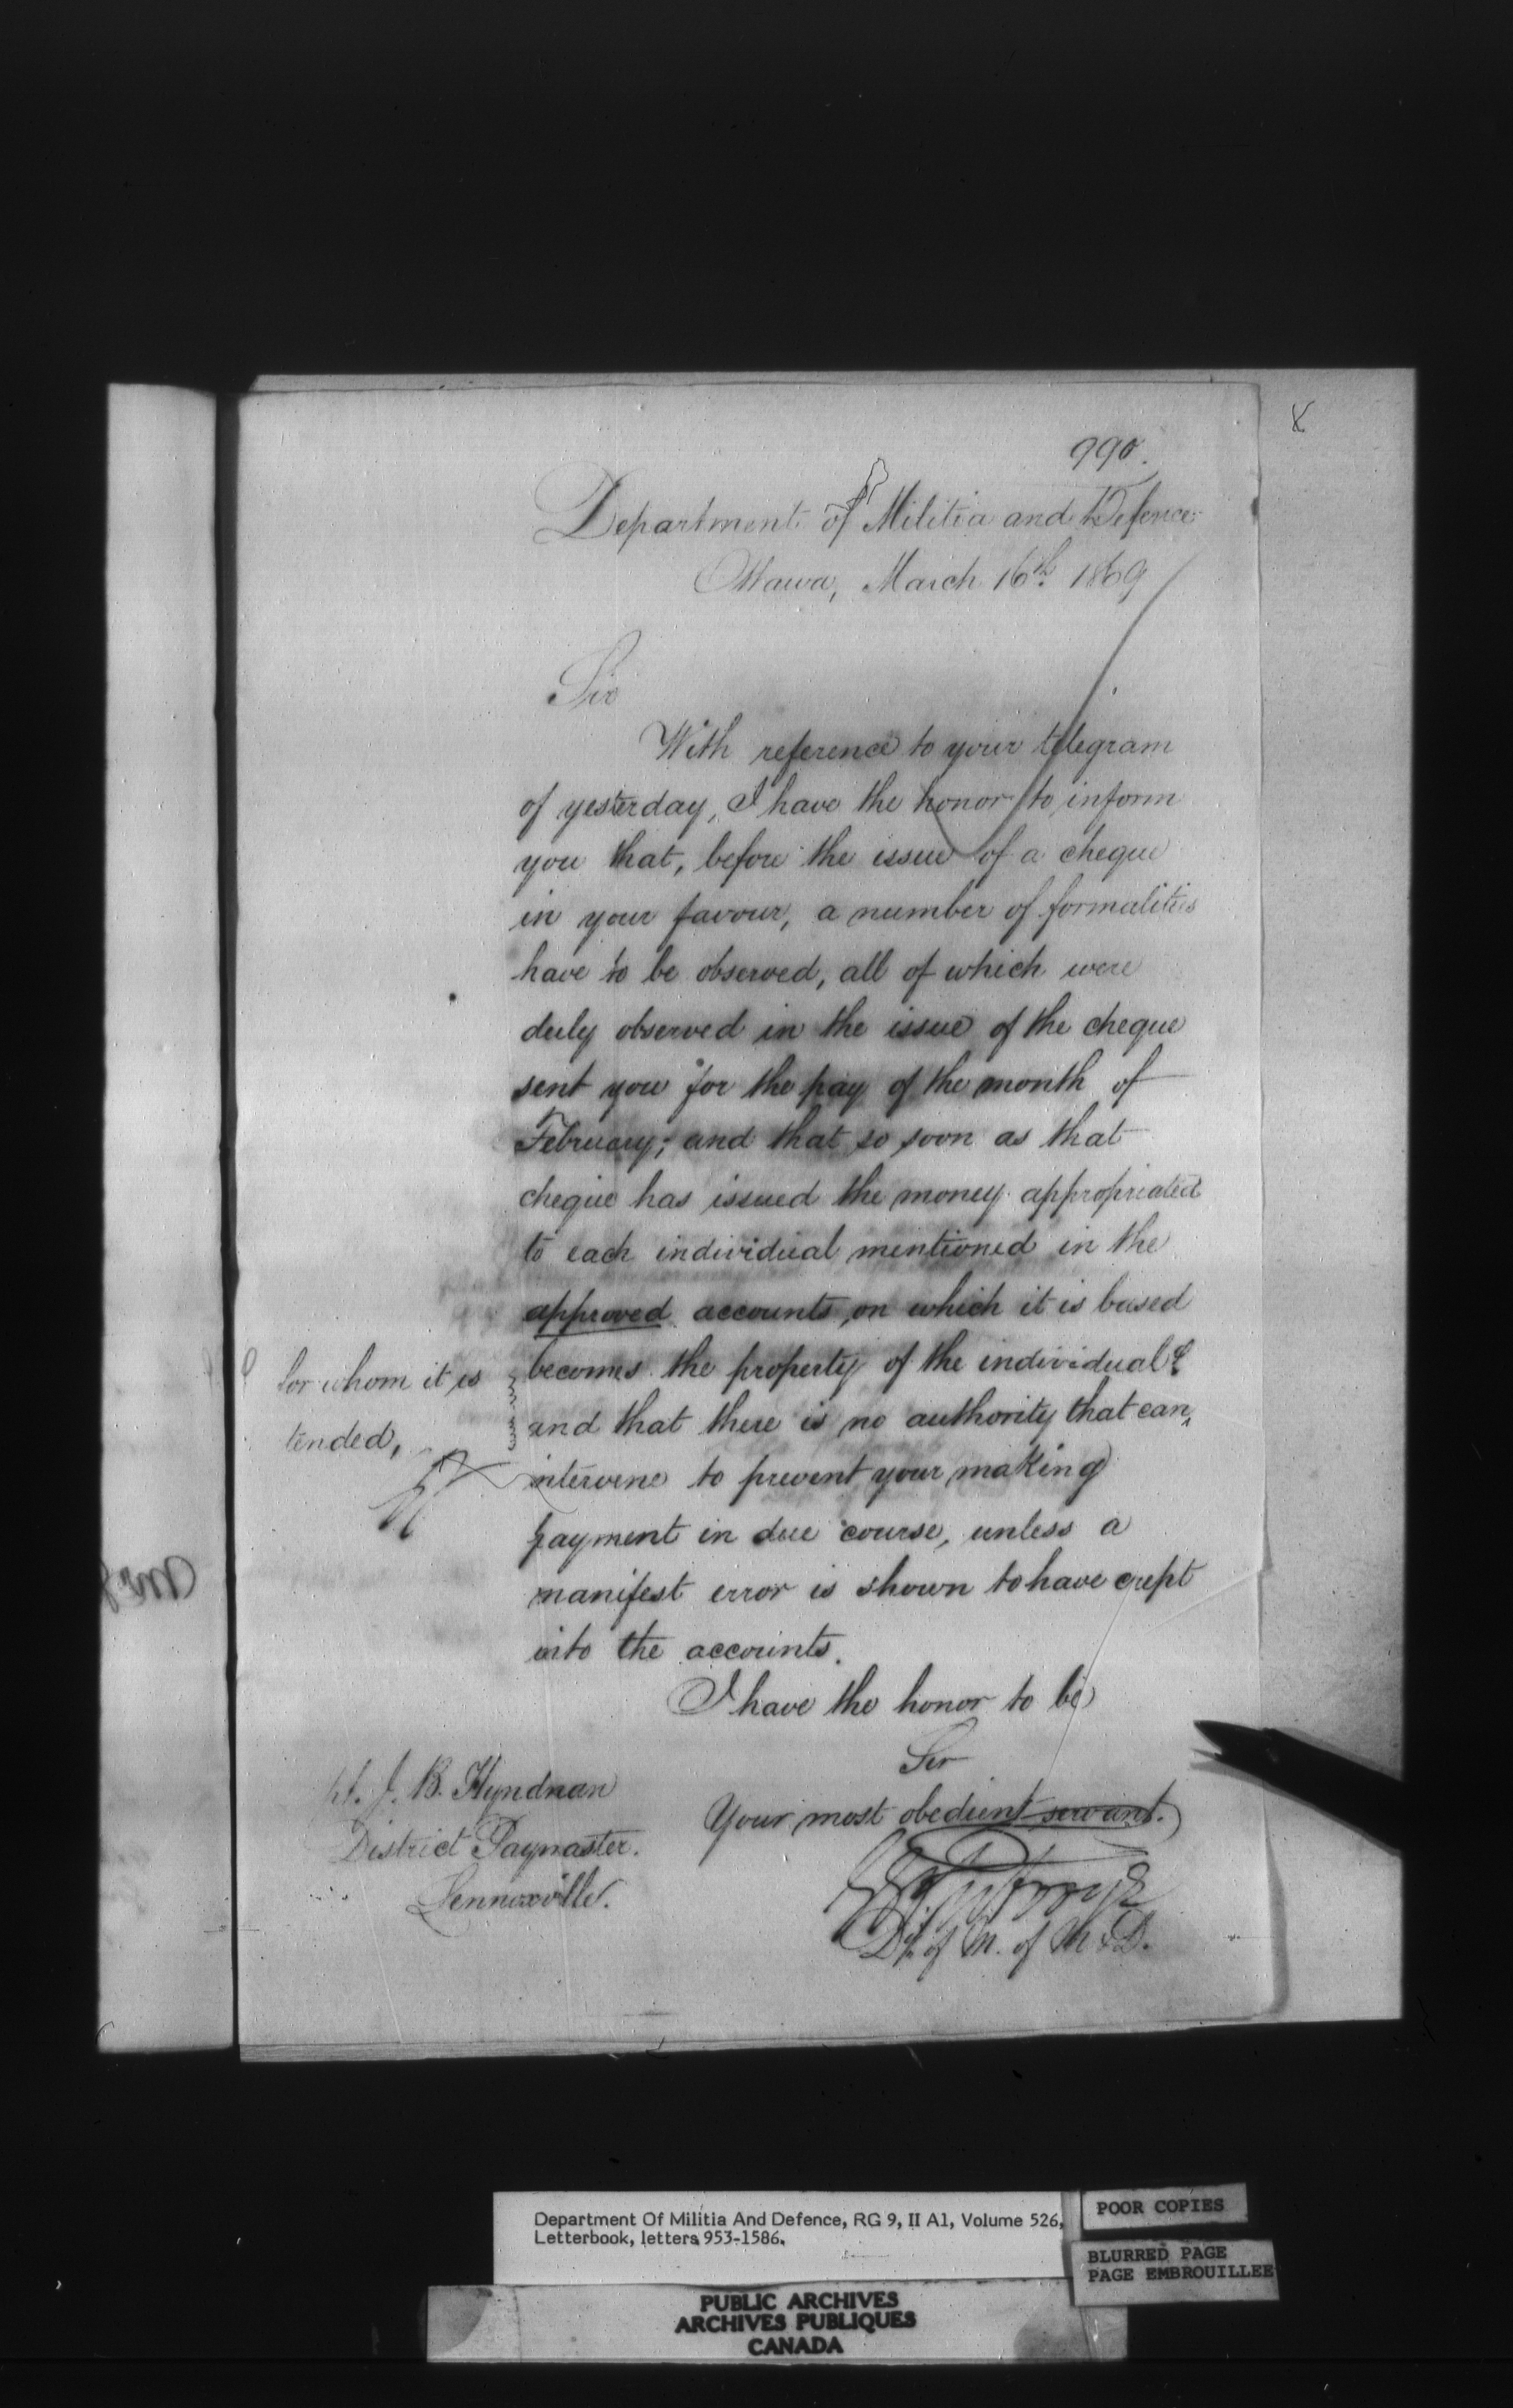 990.
Department of Militia and Defence
Ottawa, March 16th 1869
Sir
With reference to your telegram
of yesterday, I have the honor to inform
you that, before the issue of a cheque
in your favour, a number of formalities
have to be observed, all of which were
duly observed in the issue of the cheque
sent you for the pay of the month of
February; and that so soon as that
cheque has issued the money appropriated
to each individual mentioned in the
approved accounts on which it is based
becomes the property of the individual
for whom it is
tended,
and that there is no authority that can
intervene to prevent your making
payment in due course, unless a
manifest error is shown to have crept
into the accounts.
I have the honor to be
Sir
Your most obedient servant.
D. of M. of M & D.
J. B. Hyndman
District Paymaster.
Lennoxville.
Department Of Militia And Defence, RG 9, II A1, Volume 526,
Letterbook, letters 953-1586.
POOR COPIES
BLURRED PAGE
PAGE EMBROUILLEE
PUBLIC ARCHIVES
ARCHIVES PUBLIQUES
CANADA